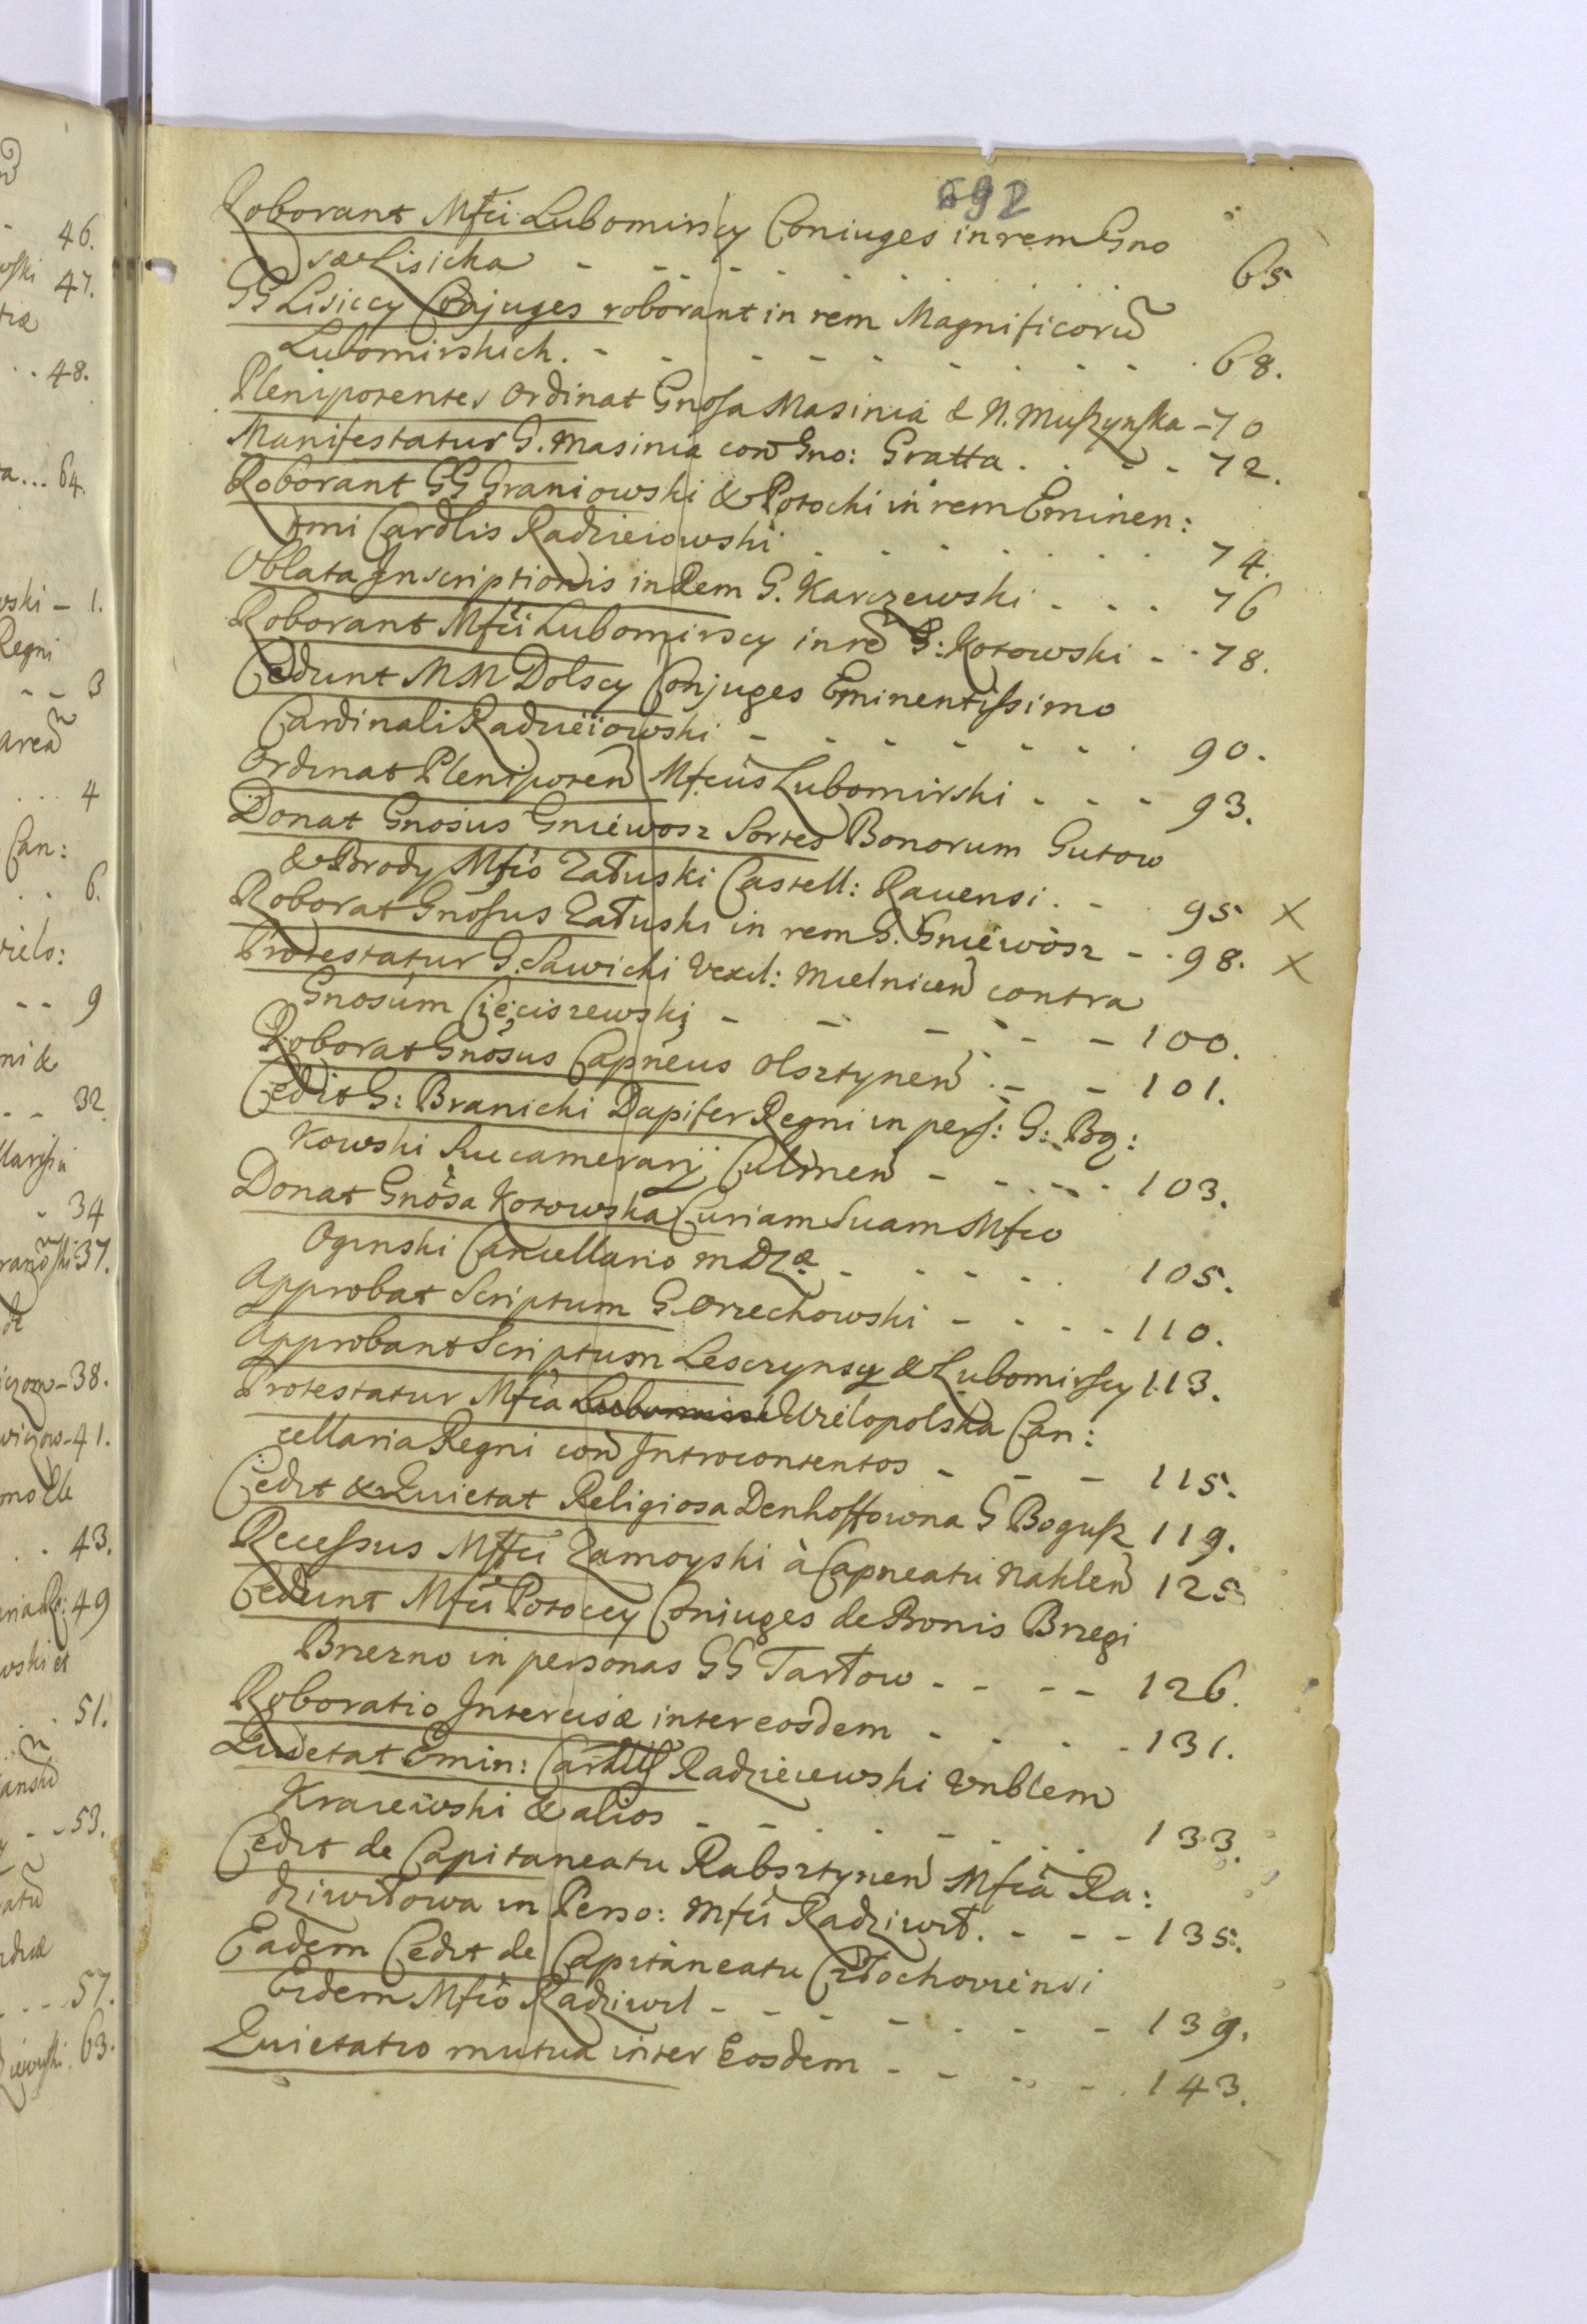 692
Roborant Mfci Lubomirscy Coniuges in rem Gno
sæ Lisicka - - - - - - - - - 65
GG Lisiccy Conjuges roborant in rem Magnificorũ
Lubomirskich. - - - - - - - - - 68.
Plenipotentes Ordinat Gnosa Masinia & N. Muszynska - 70
Manifestatur G. Masinia con Gno: Gratta . . - - 72.
Roborant GG Graniowski & Potocki in rem Eminen:
tmi Cardlis Radzieiowski . . - - - - . . 74.
Oblata Inscriptionis in Rem G. Karczewski - - - 76
Roborant Mfci Lubomirscy in re G: Kotowski - - 78.
Cedunt MM Dolscy Conjuges Eminentissimo
Cardinali Radzieiowski - - - - - - . 90.
Ordinat Plenipoten Mfcus Lubomirski - - - 93.
Donat Gnosus Gniewosz Sortes Bonorum Gutow
& Brody Mfco Załuski Castell: Rauensi . - 95 X
Roborat Gnosus Załuski in rem G. Gniewosz - . 98. X
Protestatur G. Sawicki Vexil: Mielnicen contra
Gnosum Cięciszewski - - - - - - 100.
Roborat Gnosus Capneus Olsztynen . - - 101.
Cedit G: Branicki Dapifer Regni in pers: G: Bą:
kowski Succamerarij Culmen - - . - . 103.
Donat Gnosa Kotowska Curiam Suam Mfco
Oginski Cancellario MDLæ - - - - . 105.
Approbat Scriptum G. Orzechowski - - - - 110.
Approbant Scriptum Lesczynscy & Lubomirscy 113.
Protestatur Mfca Lubomirsk Wielopolska Can:
cellaria Regni con Introcontentos - - - 115.
Cedit & Quietat Religiosa Denhoffowna G Bogusz 119.
Recessus Mffci Zamoyski à Capneatu Naklen 125
Cedunt Mfci Potoccy Coniuges de Bonis Brzegi
Brzezno in personas GG Tarłow - - - - 126.
Roboratio Intercisæ inter eosdem - - - - 131.
Quietat Emin: Cardlis Radzieiewski Vnblem
Kraiewski & alios - - . . - - . . 133.
Cedit de Capitaneatu Rabsztynen Mfca Ra:
dziwiłowa in Perso: Mfci Radziwił. - - - 135.
Eadem Cedit de Capitaneatu Człochoviensi
Eidem Mfco Radziwil - - - - - - - 139.
Quietatio mutua inter Eosdem - - - - . 143.
46.
47.
48.
64.
1.
Regni
3
4
Can:
6.
9
32
34
37.
38.
41.
43.
49
51.
53.
57.
63.